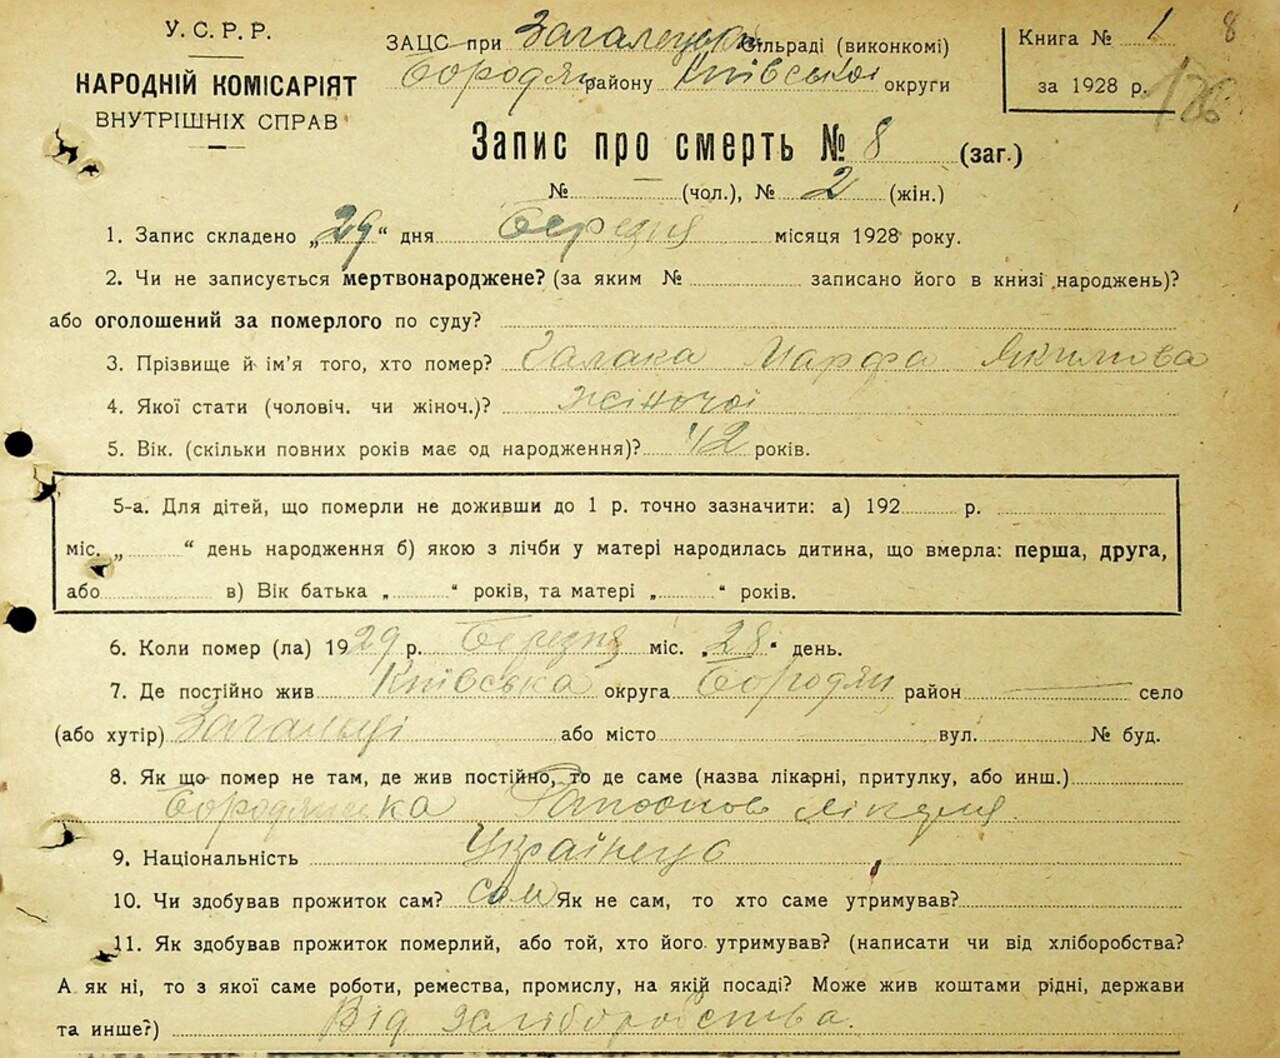 У.С.Р.Р.
НАРОДНІЙ КОМІСАРІЯТ
ВНУТРІШНІХ СПРАВ
ЗАЦС при Загалецькій сільраді (виконкомі)
Бородян району Київської округи
Книга № 1 8
за 1928 р.
Запис про смерть № 8 (заг.)
№ — (чол.), № 2 (жін.)
1. Запис складено „29“ дня Березня місяця 1928 року.
2. Чи не записується мертвонароджене? (за яким № записано його в книзі народжень)?
або оголошений за померлого по суду?
3. Прізвище й ім'я того, хто помер? Галака Марфа Якимова
4. Якої стати (чоловіч. чи жіноч.)? жіночої
5. Вік. (скільки повних років має од народження)? 42 років.
5-а. Для дітей, що померли не доживши до 1 р. точно зазначити: а) 192 р.
міс. „ “ день народження б) якою з лічби у матері народилась дитина, що вмерла: перша, друга,
або в) Вік батька „ “ років, та матері „ “ років.
6. Коли помер (ла) 1929 р. Березня міс. „28“ день.
7. Де постійно жив Київська округа Бородян район — село
(або хутір) Загальці або місто вул. № буд.
8. Як що помер не там, де жив постійно, то де саме (назва лікарні, притулку, або инш.)
Бородянська лікарня
9. Національність Українець
10. Чи здобував прожиток сам? сам Як не сам, то хто саме утримував?
11. Як здобував прожиток померлий, або той, хто його утримував? (написати чи від хліборобства?
А як ні, то з якої саме роботи, ремества, промислу, на якій посаді? Може жив коштами рідні, держави
та инше?) Від хліборобства.